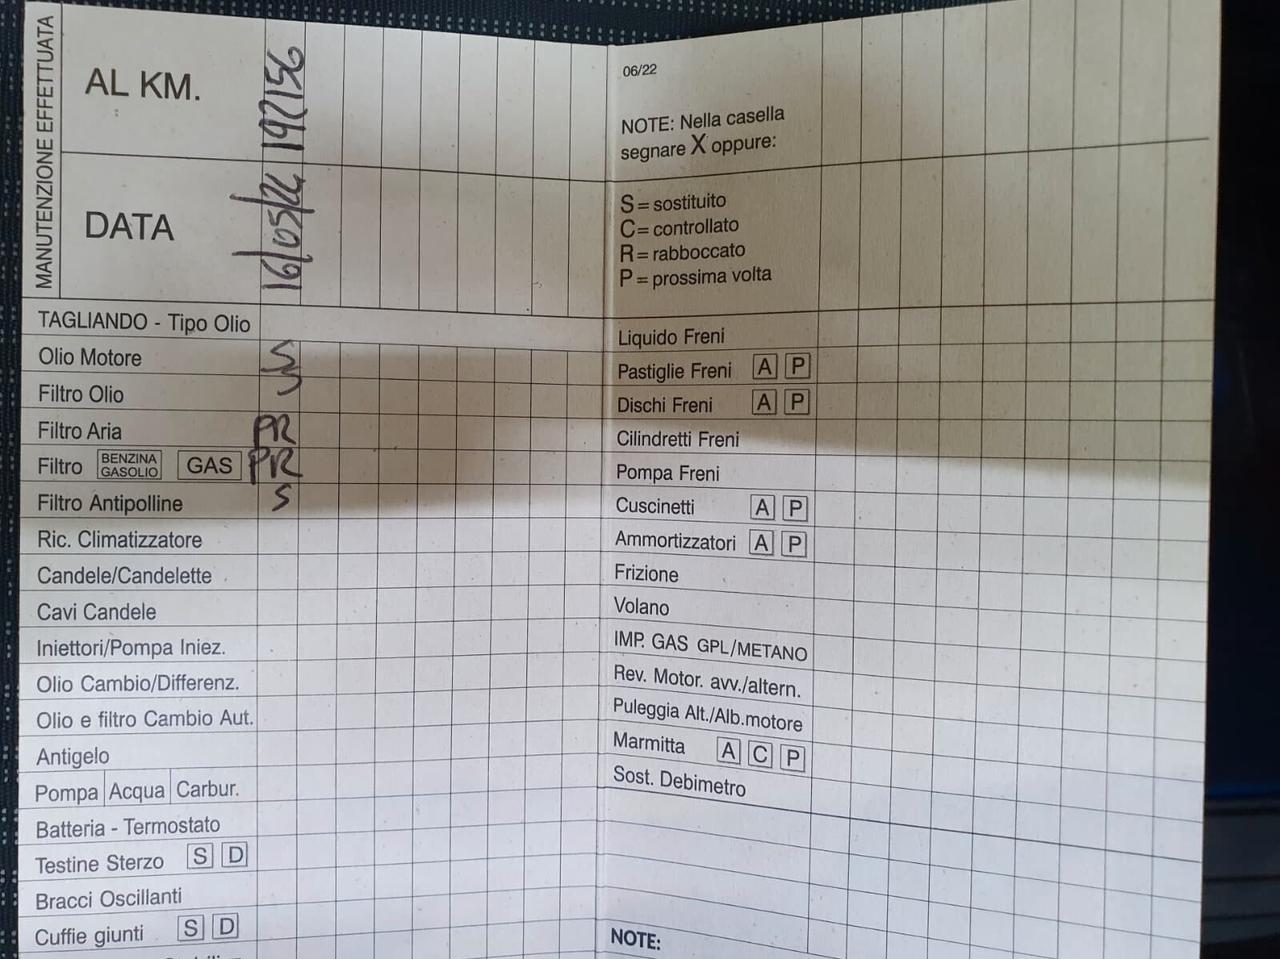 MANUTENZIONE EFFETTUATA
AL KM.
192156
DATA
16/05/24
TAGLIANDO - Tipo Olio
Olio Motore S
Filtro Olio S
Filtro Aria PR
Filtro BENZINA GASOLIO GAS PR
Filtro Antipolline S
Ric. Climatizzatore
Candele/Candelette
Cavi Candele
Iniettori/Pompa Iniez.
Olio Cambio/Differenz.
Olio e filtro Cambio Aut.
Antigelo
Pompa Acqua Carbur.
Batteria - Termostato
Testine Sterzo S D
Bracci Oscillanti
Cuffie giunti S D
06/22
NOTE: Nella casella
segnare X oppure:
S = sostituito
C = controllato
R = rabboccato
P = prossima volta
Liquido Freni
Pastiglie Freni A P
Dischi Freni A P
Cilindretti Freni
Pompa Freni
Cuscinetti A P
Ammortizzatori A P
Frizione
Volano
IMP. GAS GPL/METANO
Rev. Motor. avv./altern.
Puleggia Alt./Alb.motore
Marmitta A C P
Sost. Debimetro
NOTE: